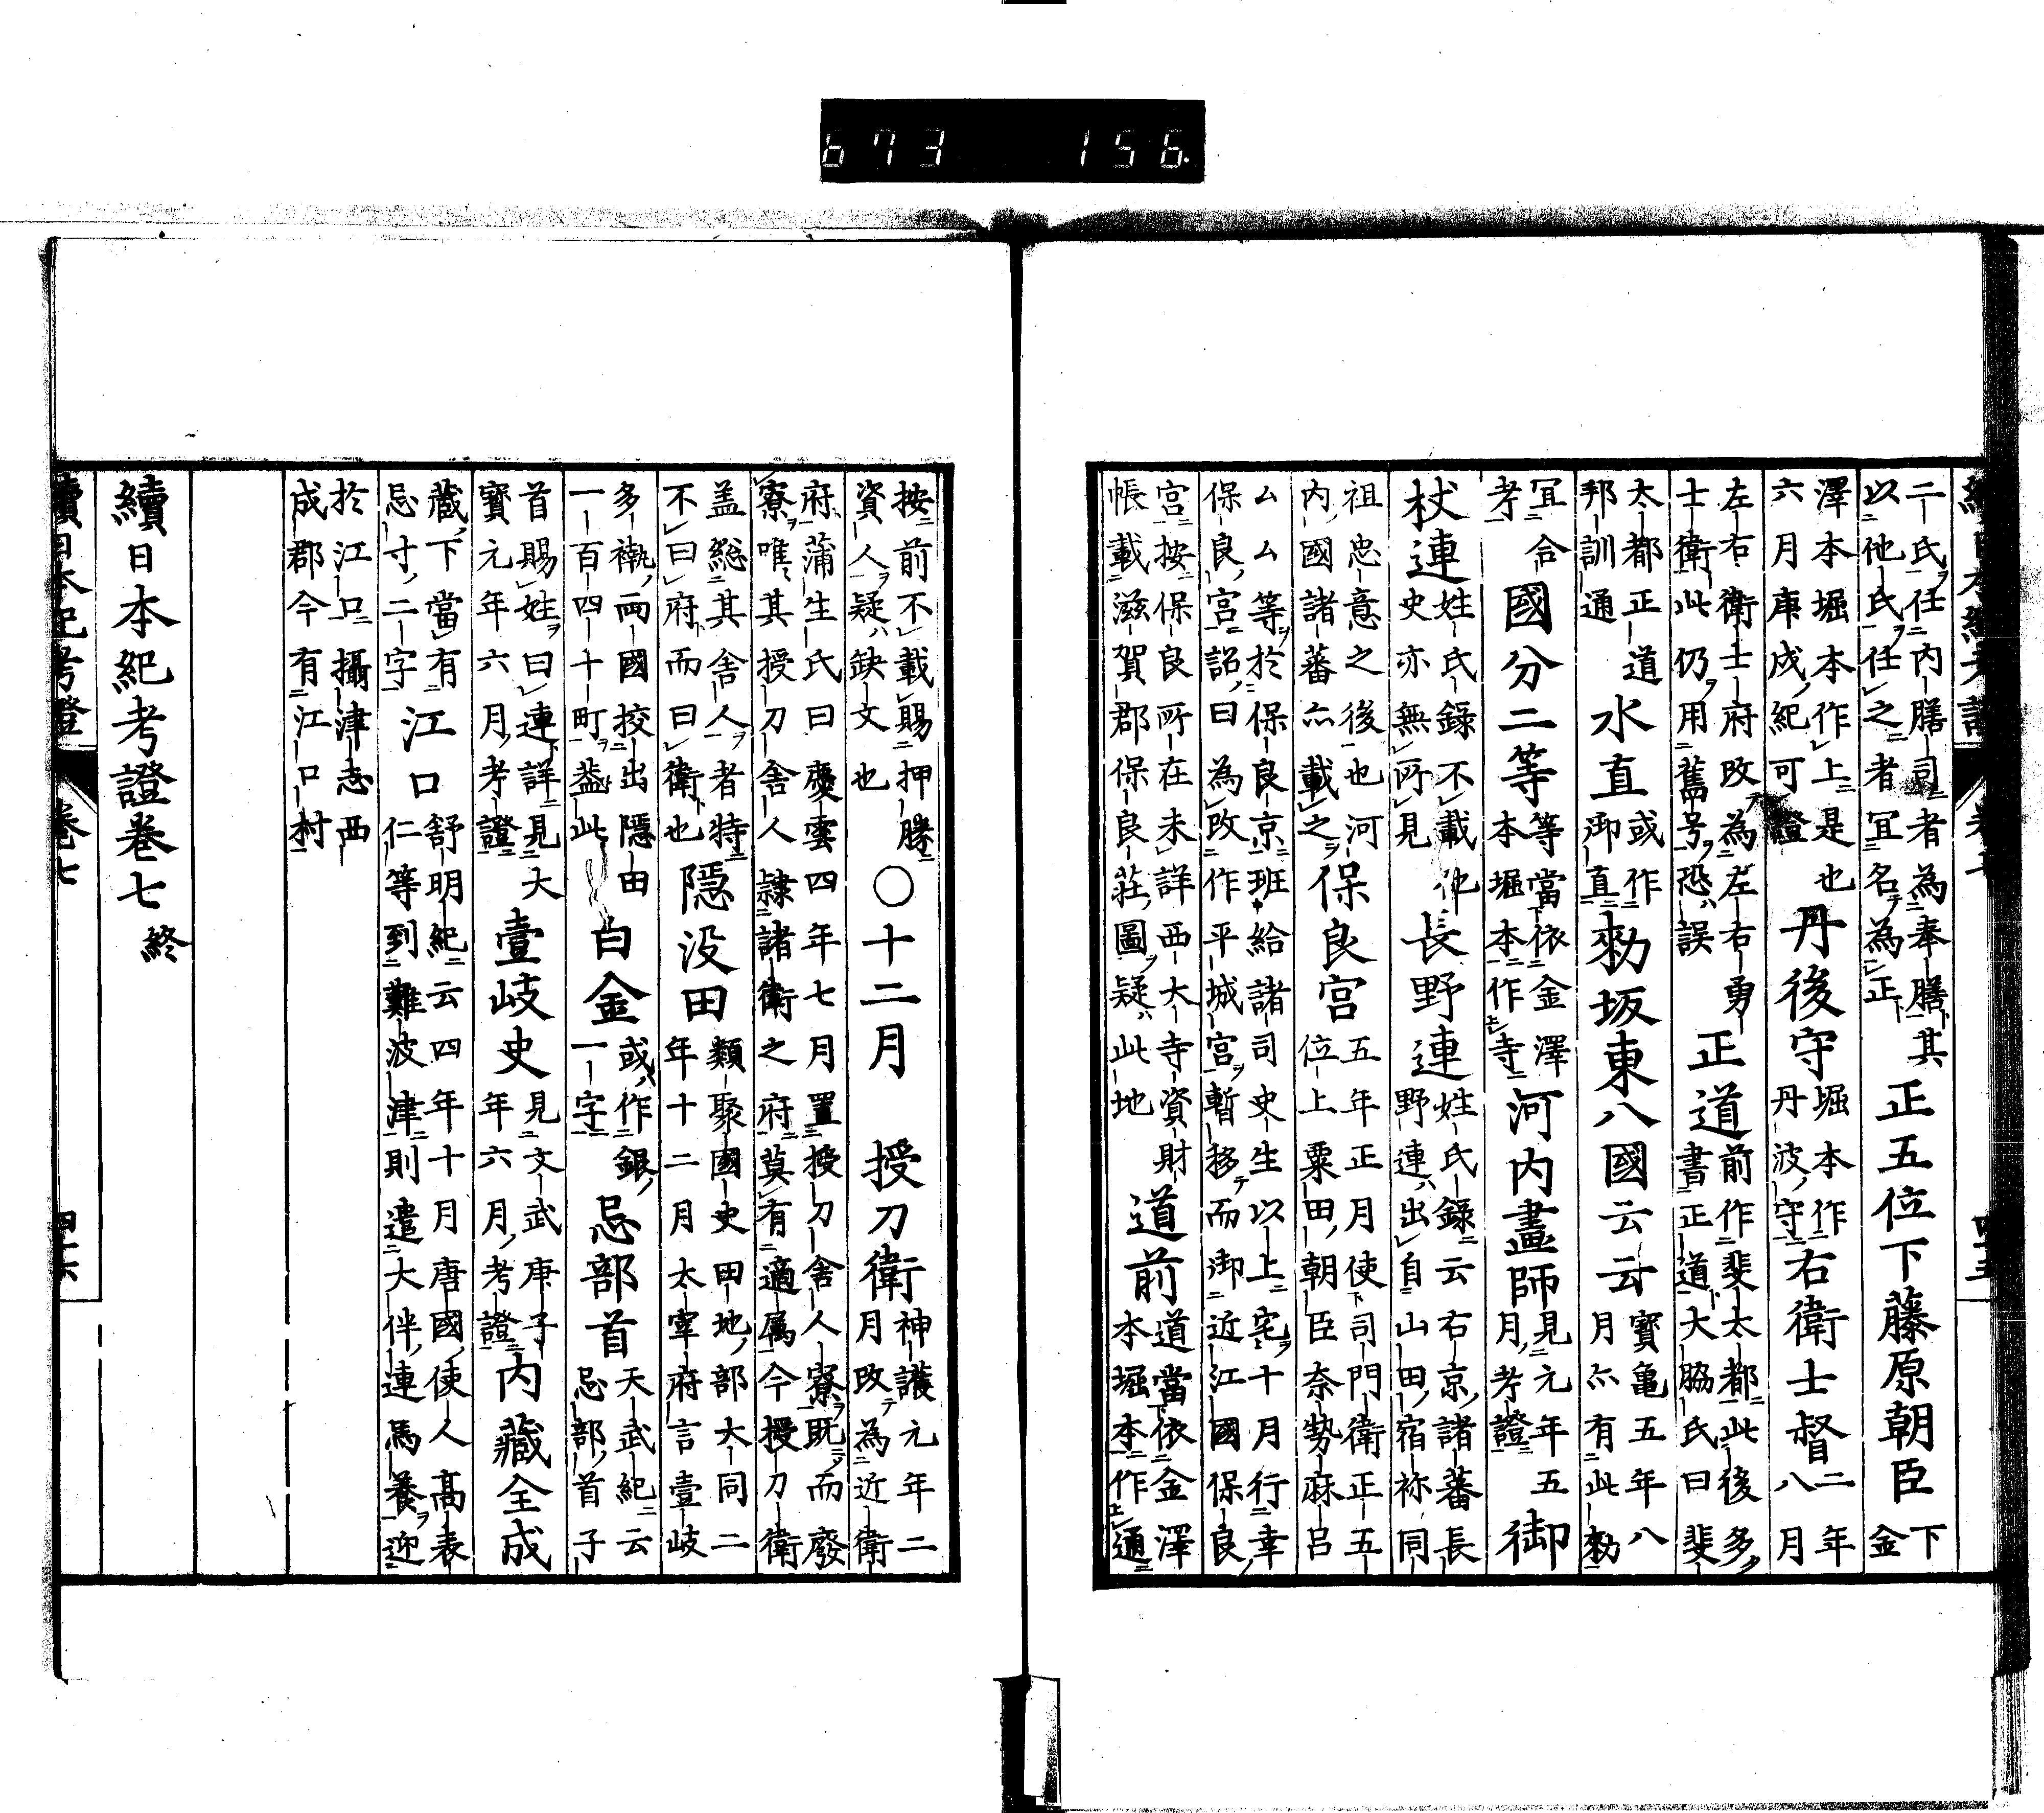 二氏任内膳司者為奉膳其
以他氏任之者冝名為正
正五位下藤原朝臣
下
金
澤本堀本作上是也
六月庚戌紀可證
丹後守
堀本作
丹波守
右衛士督
二年
八月
左右衛士府改為左右勇
士衛此仍用舊号恐誤
正道
前作斐太都此後多
書正道大脇氏曰斐
太都正道
邦訓通
水直
或作
御直
勑坂東八國云云
寶亀五年八
月亦有此勑
冝合
考
國分二等
等當依金澤
本堀本作寺
河内畫師
見元年五
月考證
御
杖連
姓氏録不載他
史亦無所見
長野連
姓氏録云右京諸蕃長
野連出自山田宿祢同
祖忠意之後也河
内國諸蕃亦載之
保良宮
五年正月使司門衛正五
位上粟田朝臣奈勢麻呂
ムム等於保良京班給諸司史生以上宅十月行幸
保良宮詔曰為改作平城宮暫移而御近江國保良
宮按保良所在未詳西大寺資財
帳載滋賀郡保良莊圖疑此地
道前
道當依金澤
本堀本作通
按前不載賜押勝
資人疑缺文也
〇十二月 授刀衛
神護元年二
月改為近衛
府蒲生氏曰慶雲四年七月置授刀舎人寮既而廢
寮唯其授刀舎人隷諸衛之府莫有適属今授刀衛
盖総其舎人者特
不曰府而曰衛也
隠没田
類聚國史田地部大同二
年十二月太宰府言壹岐
多褹兩國挍出隱田
一百四十町盖此
白金
或作銀
一字
忌部首
天武紀云
忌部首子
首賜姓曰連詳見大
寶元年六月考證
壹岐史
見文武庚子
年六月考證
内藏全成
藏下當有
忌寸二字
江口
舒明紀云四年十月唐國使人高表
仁等到難波津則遣大伴連馬養迎
於江口攝津志西
成郡今有江口村
續日本紀考證卷七 終
續日本紀考證 卷七 四十六
673 156.